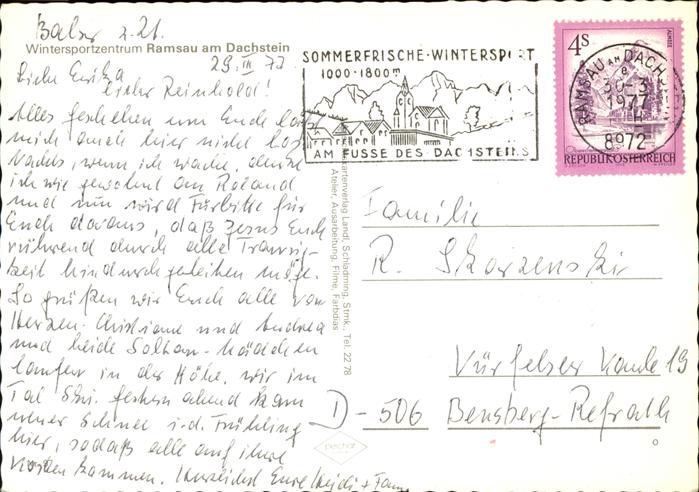 Wintersportzentrum Ramsau am Dachstein
29. III 77
Liebe Erika
lieber Reinhold!
Alles Geschehen um Euch läßt
mich auch hier nicht los
Nachts, wenn ich wache, denke
ich wie gewohnt an Roland
und nun wird Fürbitte für
Euch daraus, daß Jesus Euch
während durch alle Traurig-
keit hindurch geleiten möge.
So grüßen wir Euch alle von
Herzen. Christiane und Andrea
und beide Mädchen
laufen in der Höhe, wir im
Tal Ski. gestern abend kam
neuer Schnee i.d. Frühling
hier, sodaß alle auf ihre
Kosten kommen. Herzlichst Eure Heidi +
SOMMERFRISCHE-WINTERSPORT
1000-1800m
AM FUSSE DES DACHSTEINS
4S
ALMSEE
REPUBLIK ÖSTERREICH
RAMSAU AM DACHSTEIN
30-3
1977
8972
kartenverlag Landl, Schladming, Stmk., Tel. 22 78
Atelier, Ausarbeitung, Filme, Farbdias
Familie
R. Skorzenski
Vürfelser Kaule 19
D-506 Bensberg-Refrath